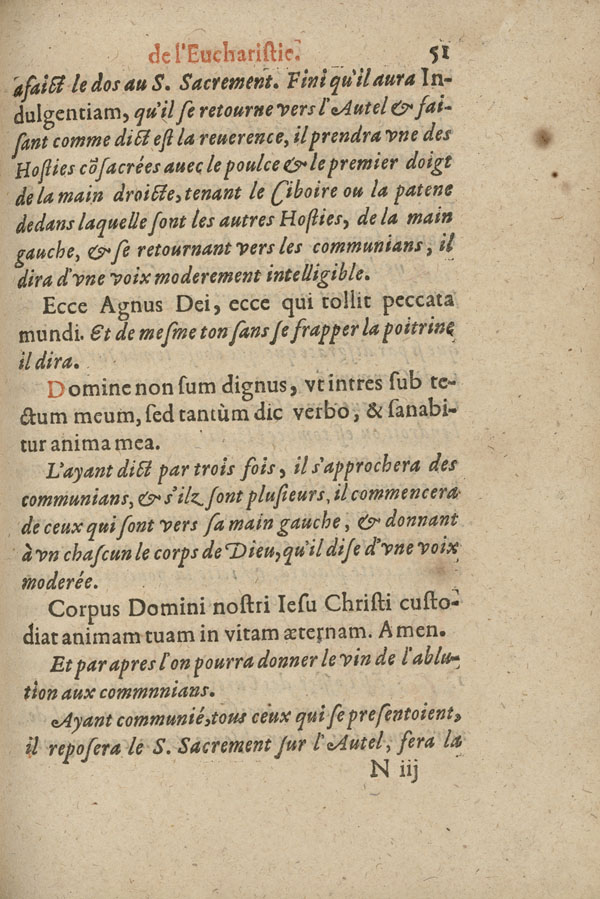 de l'Euchariſtie. 51
afaict le dos au S. Sacrement. Fini qu'il aura In-
dulgentiam, qu'il ſe retourne vers l'Autel & fai-
ſant comme dict eſt la reuerence, il prendra vne des
Hoſties cõſacrées auec le poulce & le premier doigt
de la main droicte, tenant le Ciboire ou la patene
dedans laquelle ſont les autres Hoſties, de la main
gauche, & ſe retournant vers les communians, il
dira d'vne voix moderement intelligible.
Ecce Agnus Dei, ecce qui tollit peccata
mundi. Et de meſme ton ſans ſe frapper la poitrine
il dira.
Domine non ſum dignus, vt intres ſub te-
ctum meum, ſed tantùm dic verbo, & ſanabi-
tur anima mea.
L'ayant dict par trois fois, il s'approchera des
communians, & s'ilz ſont pluſieurs, il commencera
de ceux qui ſont vers ſa main gauche, & donnant
à vn chaſcun le corps de Dieu, qu'il diſe d'vne voix
moderée.
Corpus Domini noſtri Ieſu Chriſti cuſto-
diat animam tuam in vitam æternam. Amen.
Et par apres l'on pourra donner le vin de l'ablu-
tion aux commnnians.
Ayant communié, tous ceux qui ſe preſentoient,
il repoſera le S. Sacrement ſur l'Autel, fera la
N iij